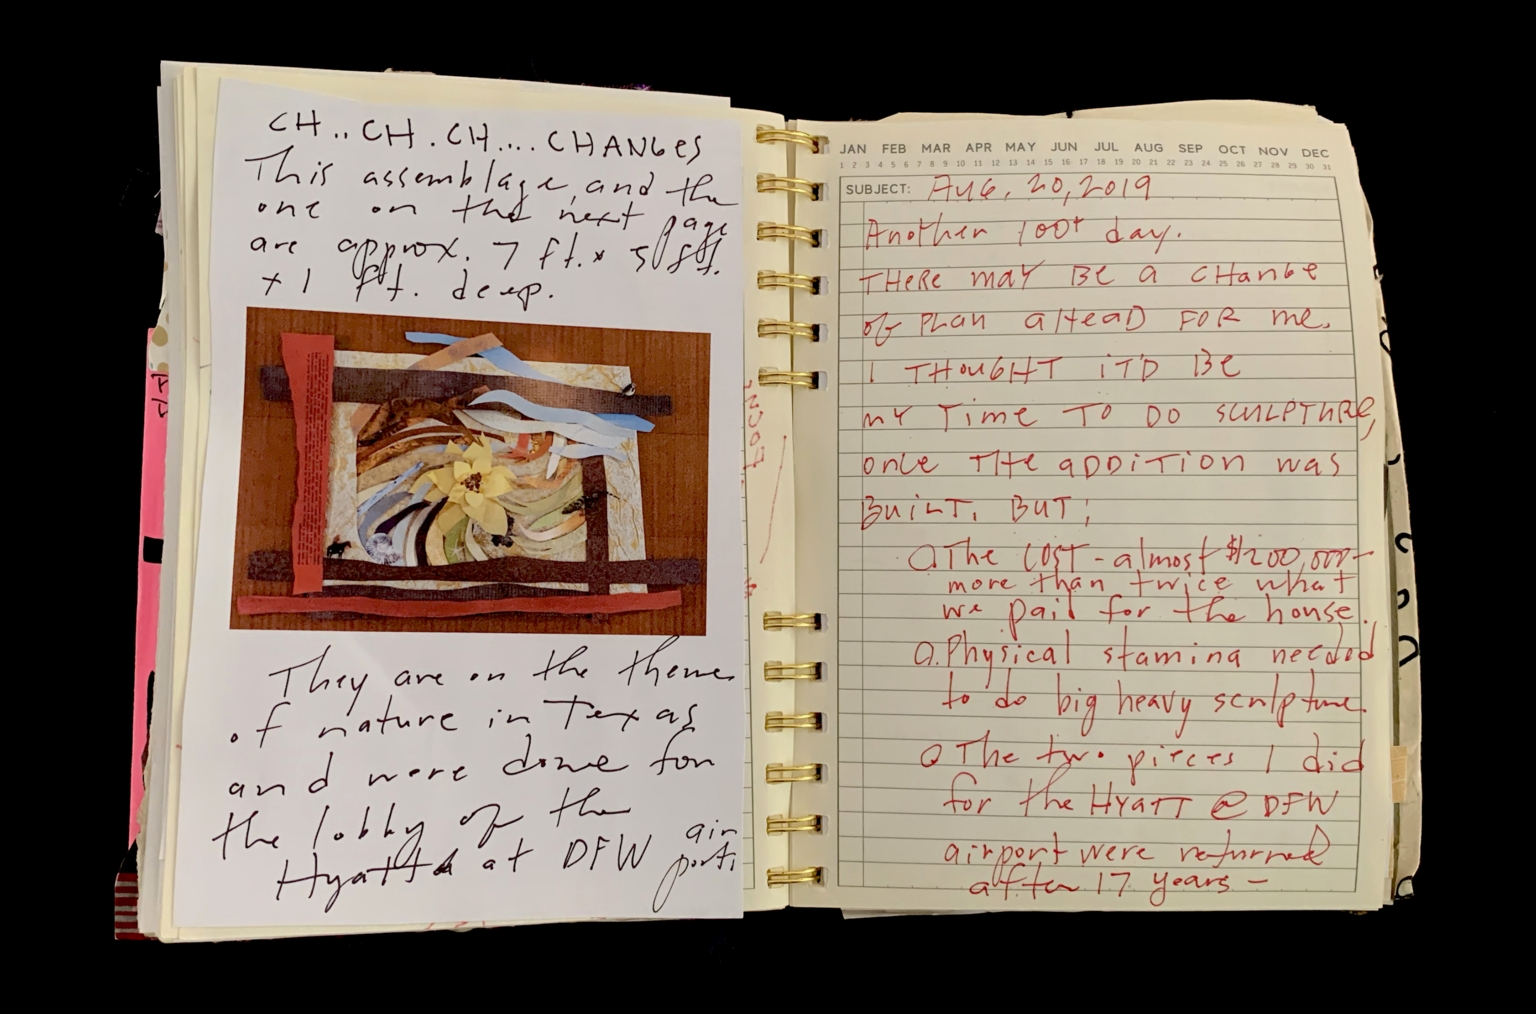 CH..CH.CH....CHANGES
This assemblage, and the
one on the next page
are approx. 7 ft. x 5 ft.
x 1 ft. deep.
They are on the theme
of nature in Texas
and were done for
the lobby of the
Hyatt at DFW air
port.
JAN FEB MAR APR MAY JUN JUL AUG SEP OCT NOV DEC
1 2 3 4 5 6 7 8 9 10 11 12 13 14 15 16 17 18 19 20 21 22 23 24 25 26 27 28 29 30 31
SUBJECT: AUG. 20, 2019
Another 100+ day.
THERE MAY BE A CHANGE
OF PLAN AHEAD FOR ME.
I THOUGHT IT'D BE
MY TIME TO DO SCULPTURE,
ONCE THE ADDITION WAS
BUILT. BUT;
O The COST - almost $200,000 -
more than twice what
we paid for the house.
O. Physical stamina needed
to do big heavy sculpture.
O The two pieces I did
for the HYATT @ DFW
airport were returned
after 17 years -